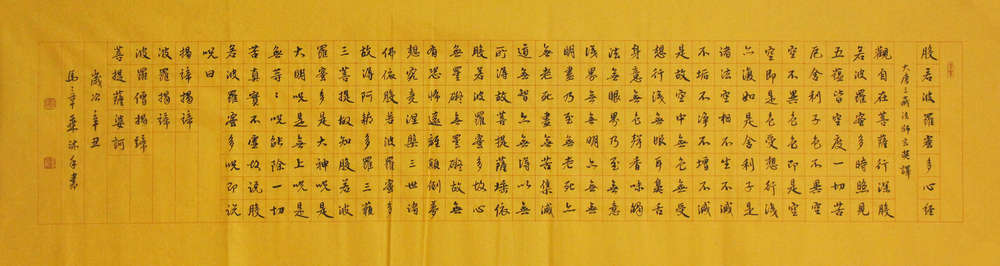 般若波羅蜜多心經
大唐三藏法師玄奘譯
觀自在菩薩行深般
若波羅蜜多時照見
五蘊皆空度一切苦
厄舍利子色不異空
空不異色色即是空
空即是色受想行識
亦復如是舍利子是
諸法空相不生不滅
不垢不淨不增不減
是故空中無色無受
想行識無眼耳鼻舌
身意無色聲香味觸
法無眼界乃至無意
識界無無明亦無無
明盡乃至無老死亦
無老死盡無苦集滅
道無智亦無得以無
所得故菩提薩埵依
般若波羅蜜多故心
無罣礙無罣礙故無
有恐怖遠離顛倒夢
想究竟涅槃三世諸
佛依般若波羅蜜多
故得阿耨多羅三藐
三菩提故知般若波
羅蜜多是大神呪是
大明呪是無上呪是
無等々呪能除一切
苦真實不虛故說般
若波羅蜜多呪即說
呪曰
揭諦揭諦
波羅揭諦
波羅僧揭諦
菩提薩婆訶
歲次辛丑
沐手書